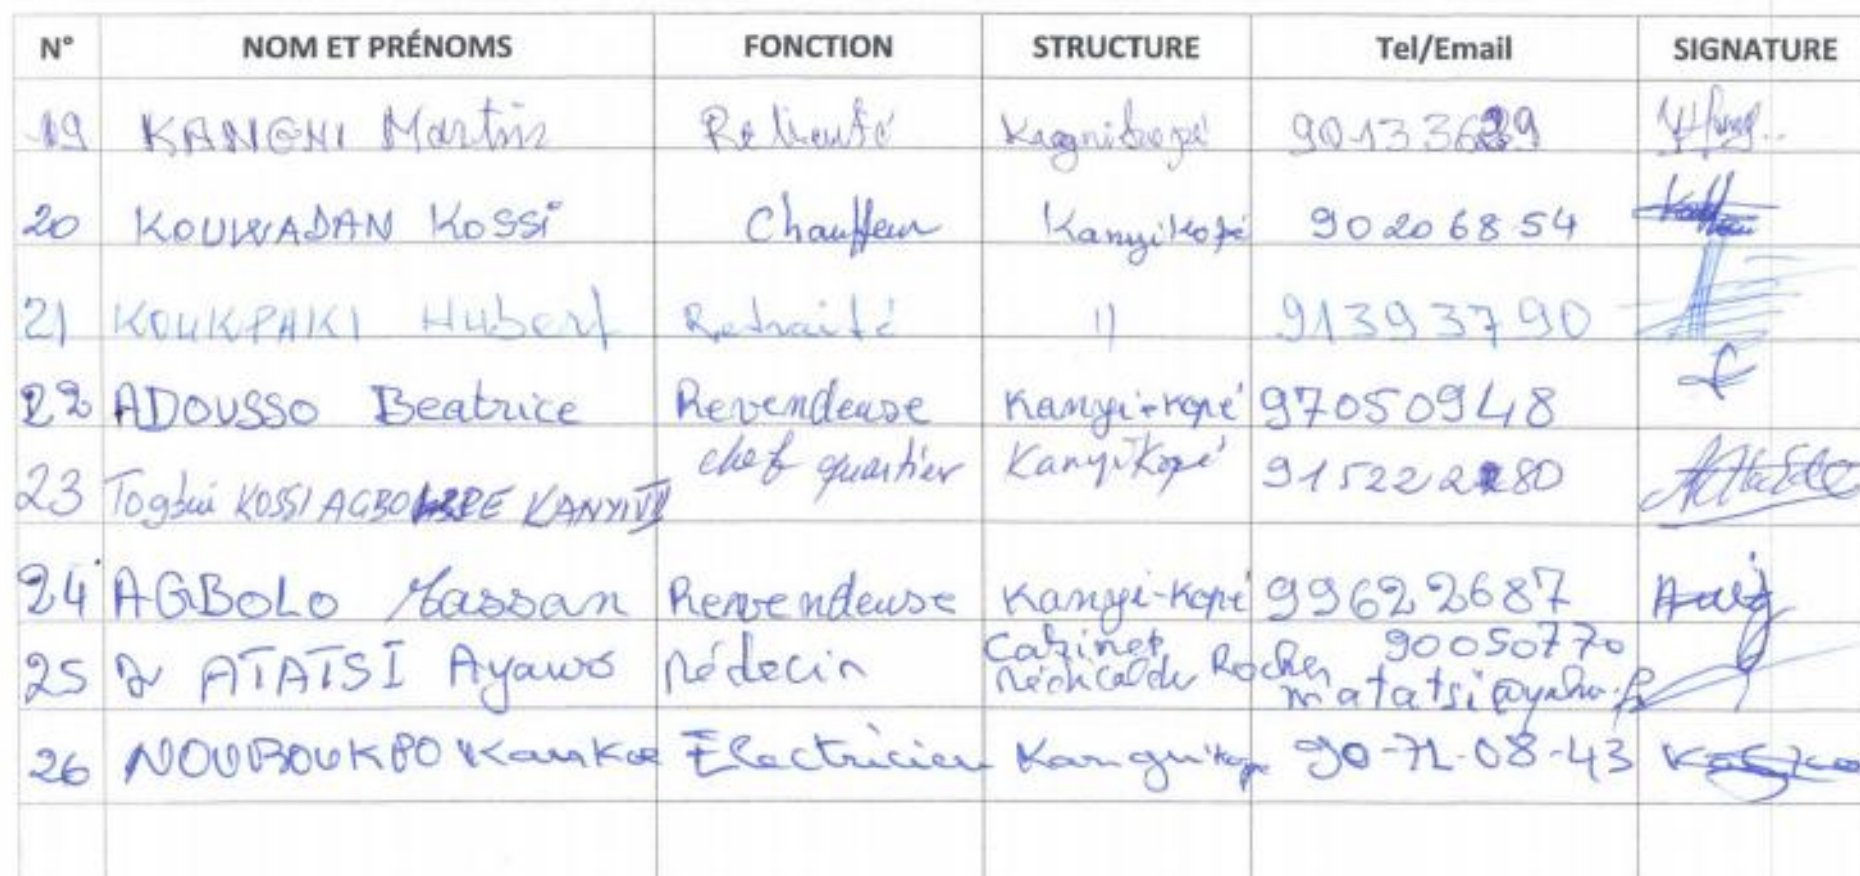 N° NOM ET PRÉNOMS FONCTION STRUCTURE Tel/Email SIGNATURE
19 KANGNI Martin Retraité Kagnikopé 90133629
20 KOUWADAN KOSSI Chauffeur Kanyikopé 90206854
21 KOUKPAKI Hubert Retraité 11 91393790
22 ADOUSSO Beatrice Revendeuse Kanyi-kopé 97050948
23 Togbui KOSSI AGBO KANYI VI chef quartier Kanyikopé 91522280
24 AGBOLO Massan Revendeuse Kanyi-Kopé 99622687
25 Dr ATATSI Ayawo Médecin Cabinet Médical du Rocher 90050770
matatsi@yahoo.fr
26 NOUBOUKPO Kankoe Électricien Kanguikope 90-71-08-43